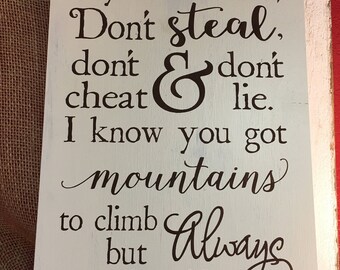 Don't steal,
don't & don't
cheat lie.
I know you got
mountains
to climb
but Always